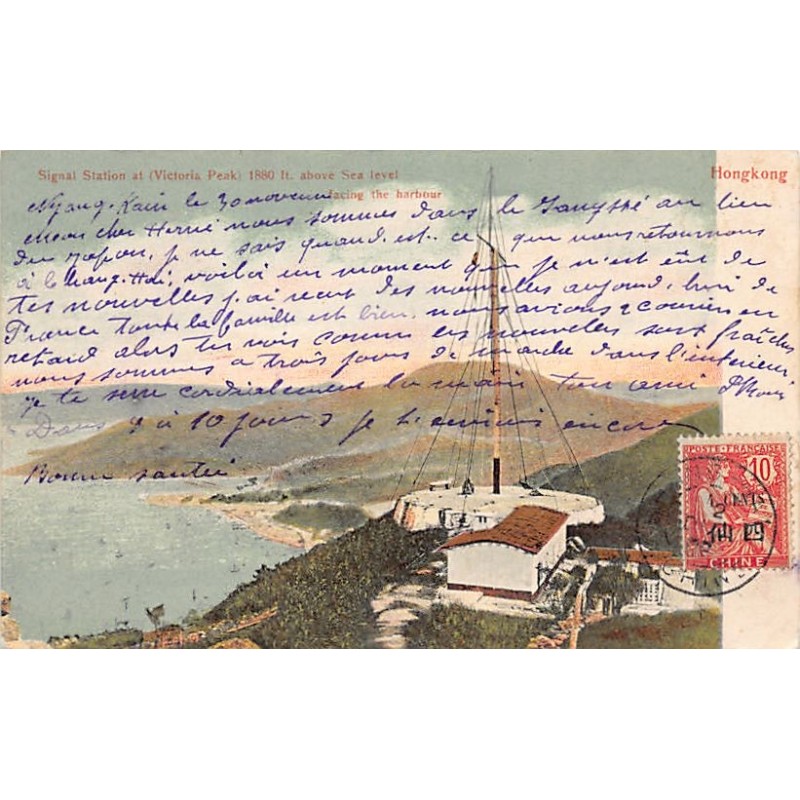 Signal Station at (Victoria Peak) 1880 ft. above Sea level
facing the harbour
Hongkong
le 30 novembre
Mon cher Hervé nous sommes dans le Yangtsé au lieu
du Japon, je ne sais quand est-ce que nous retournons
à Chang-Hai, voilà un moment que je n'est eûe de
tes nouvelles j'ai recut des nouvelles aujourd'hui de
France toute la famille est bien. nous avions 2 courriers en
retard alors tu vois comme les nouvelles sont fraîches
nous sommes a trois jours de marche dans l'interieur
je te serre cordialement la main ton ami
Dans 8 à 10 jours je t'écrirais encore
Bonne santée
POSTE FRANÇAISE
10
4 CENTS
CHINE
CHINE